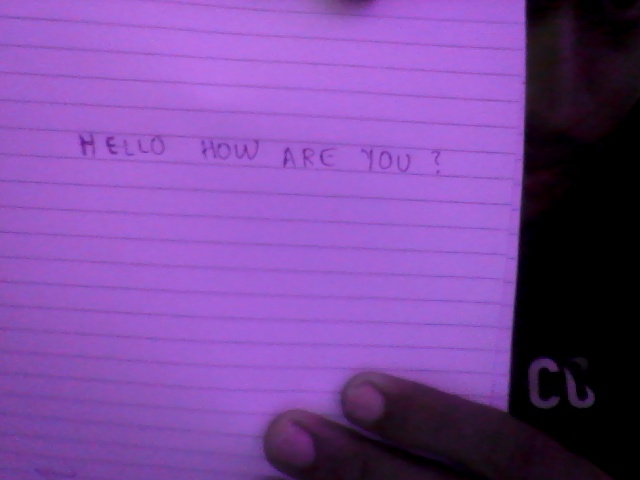 HELLO HOW ARE YOU ?